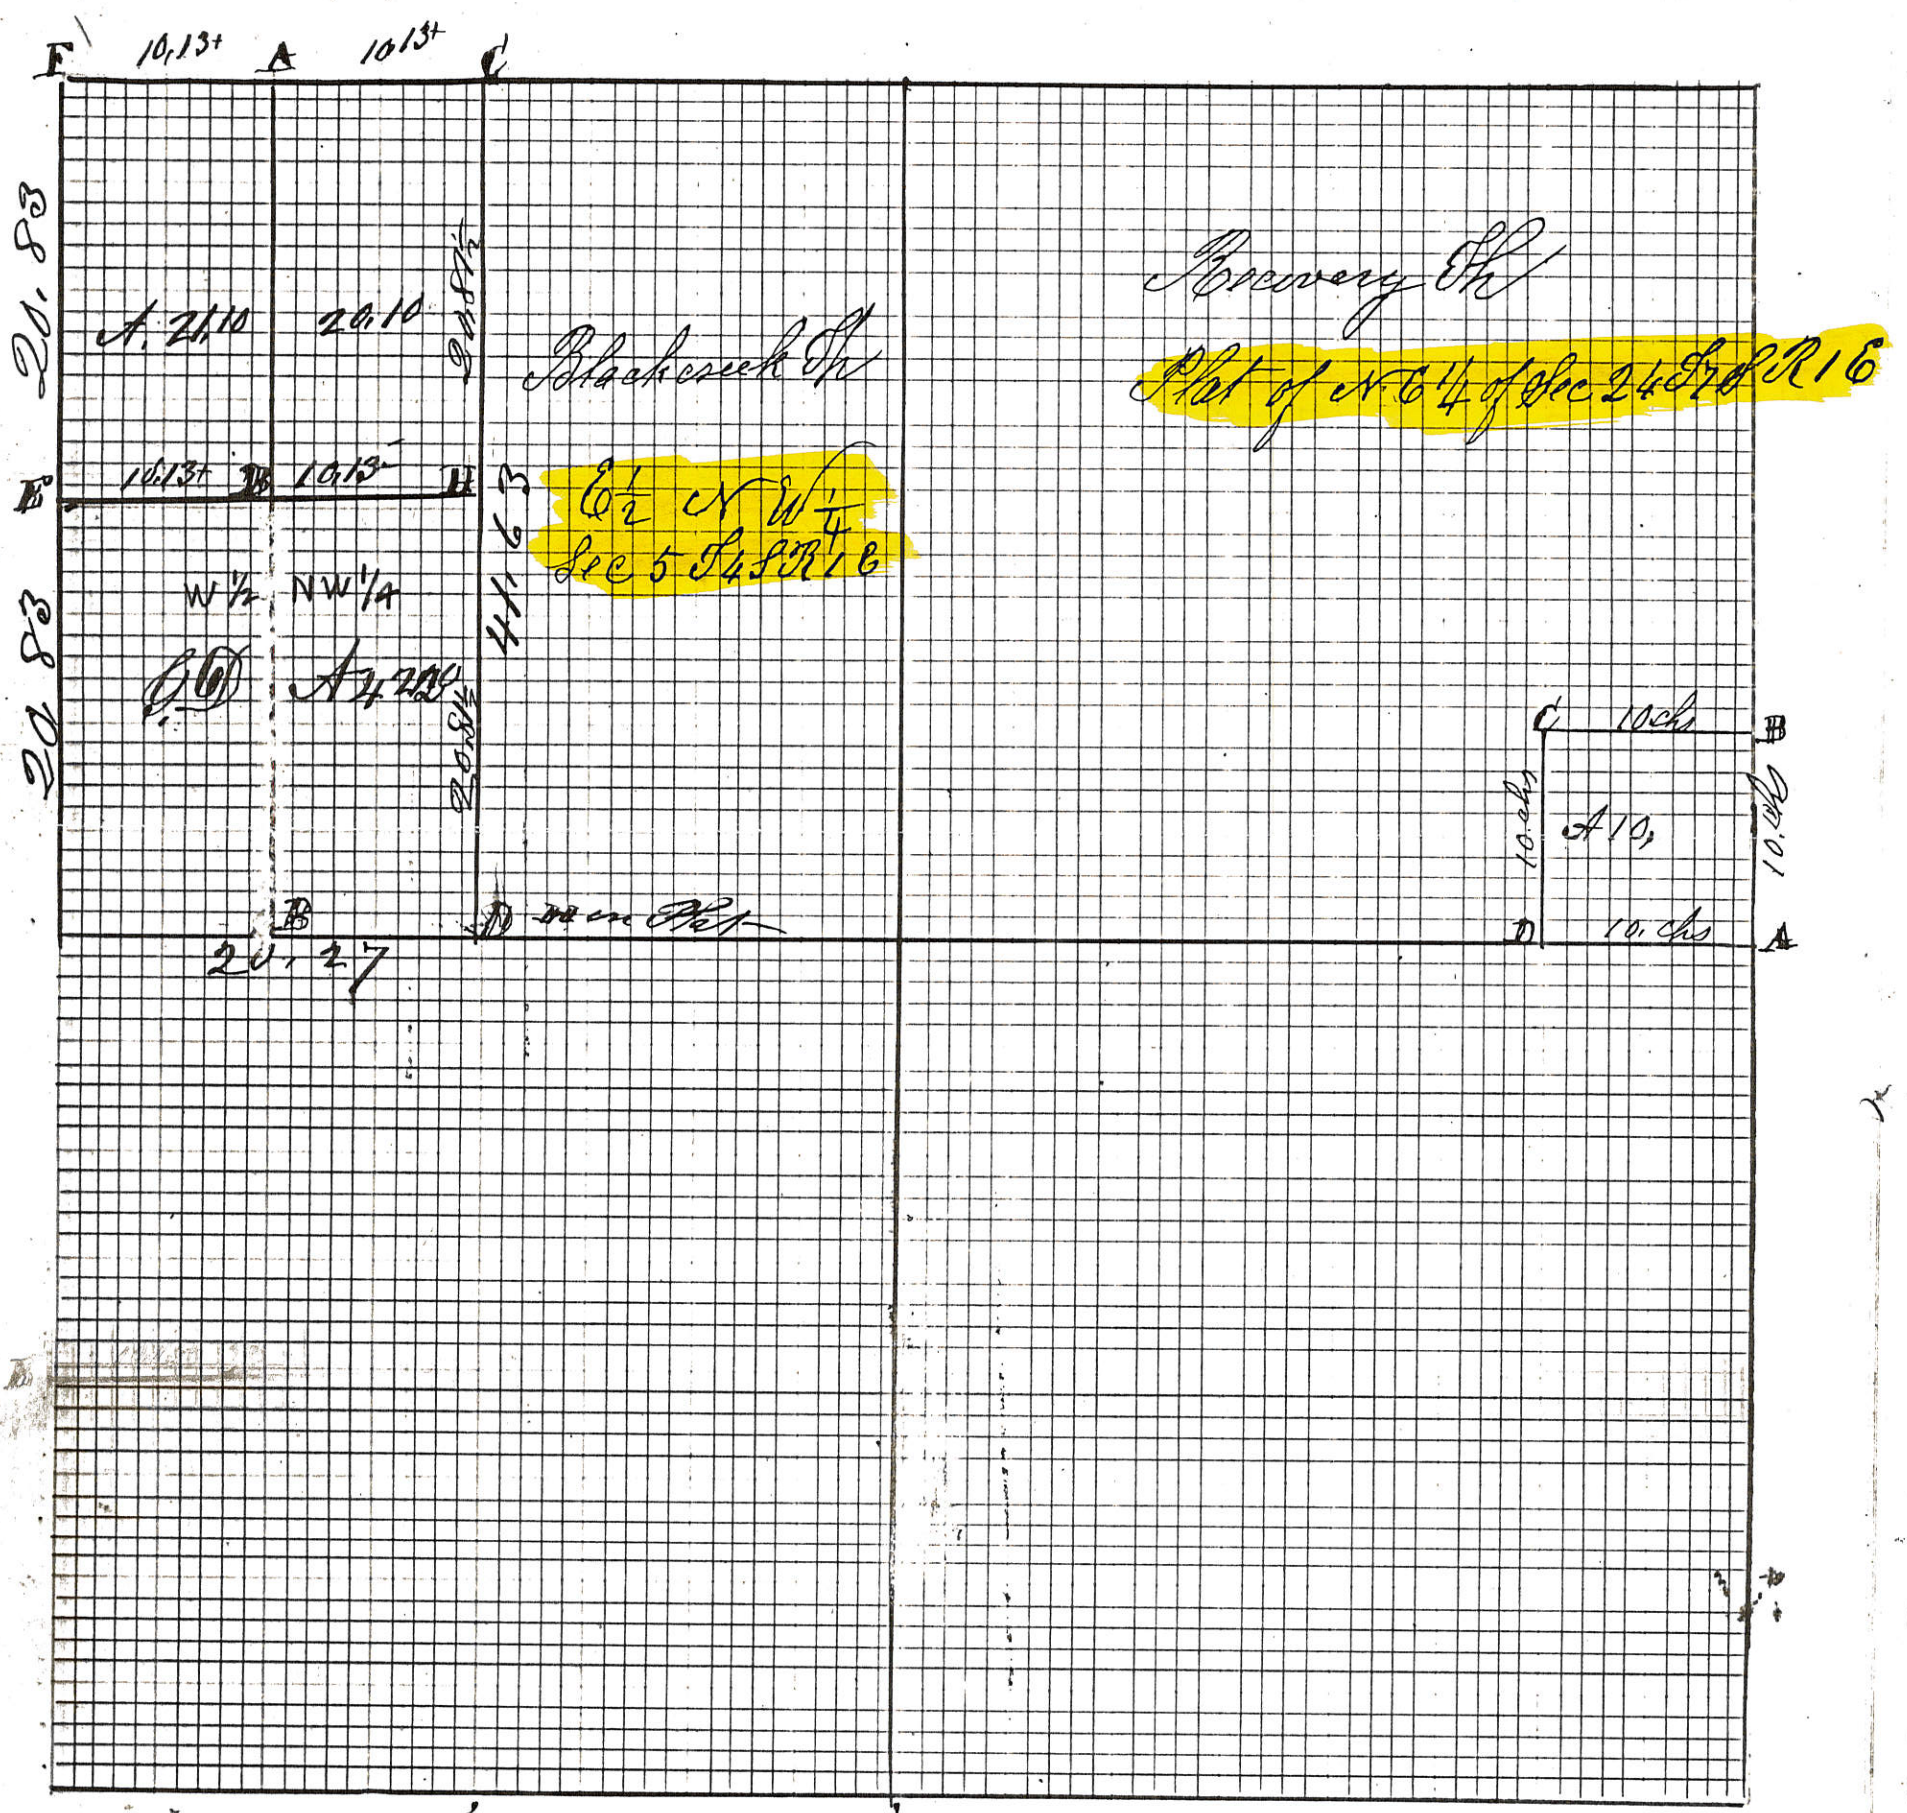 F 10,13+ A 10,13+ C
20.83
A. 21,10 20,10
20.81½
Blackcreek Th
Recovery Th
Plat of N E ¼ of Sec 24 T7 S R 1 E
E 10,13+ 10,13- H
41.63
E ½ N W ¼
Sec 5 T4 S R 1 E
W ½ NW ¼
20 83
A 42
20.81½
C 10.chs B
10.chs
A 10,
10.chs
B D Plat
D 10. chs A
20.27